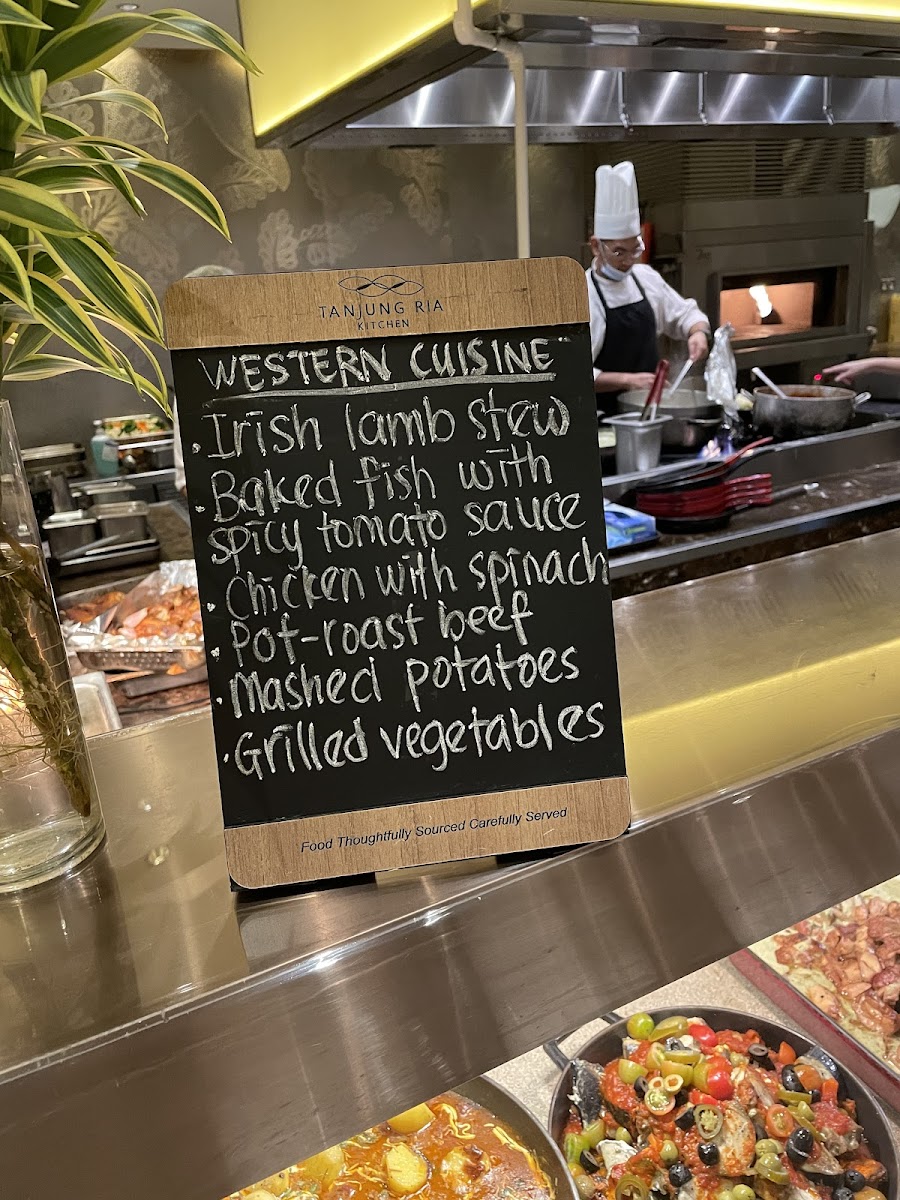 TANJUNG RIA
KITCHEN
"WESTERN CUISINE"
• Irish lamb stew
• Baked fish with
spicy tomato sauce
• Chicken with spinach
• Pot-roast beef
• Mashed potatoes
• Grilled vegetables
Food Thoughtfully Sourced Carefully Served